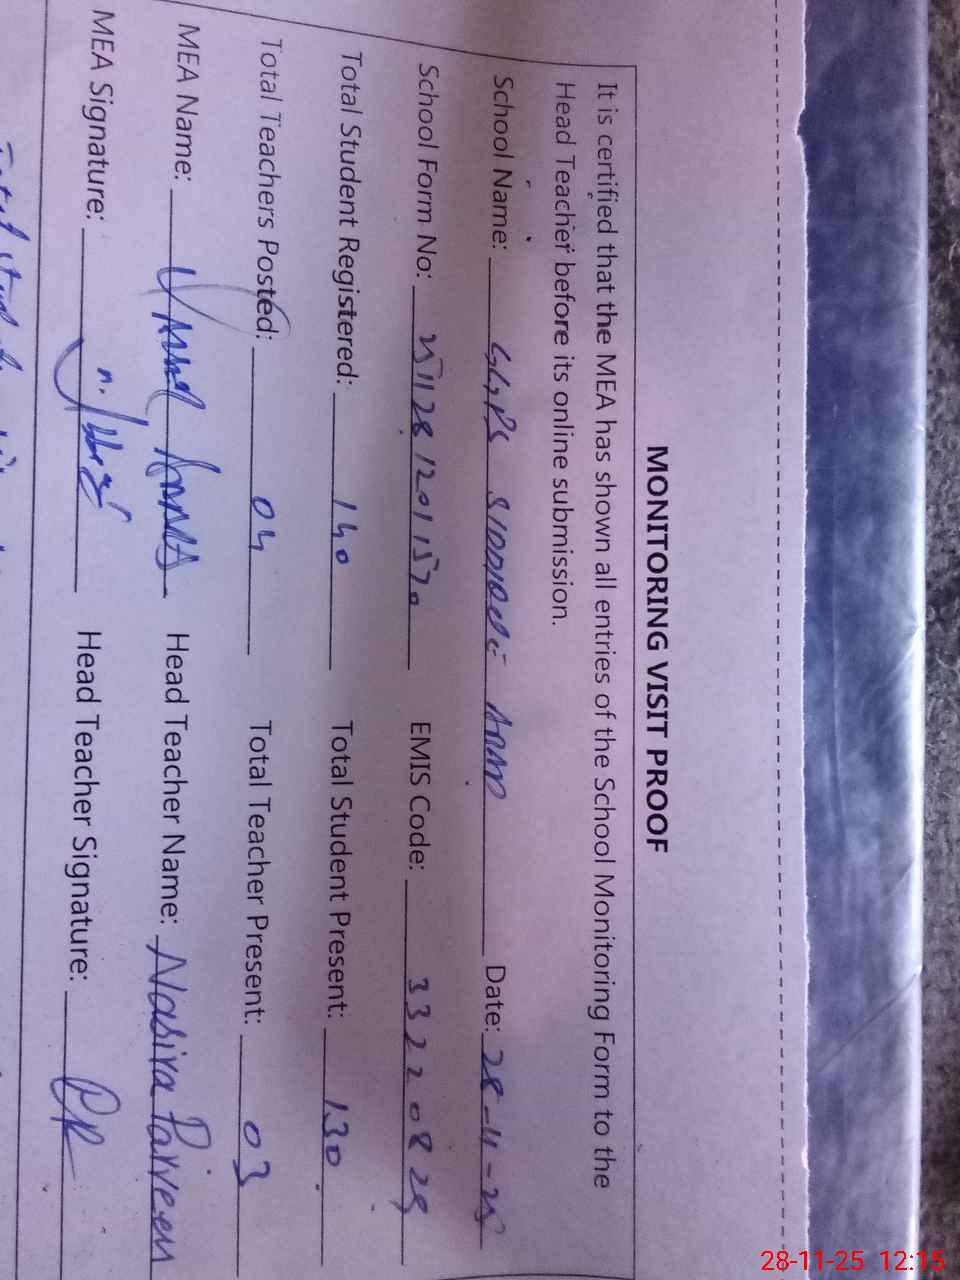 MONITORING VISIT PROOF
It is certified that the MEA has shown all entries of the School Monitoring Form to the
Head Teacher before its online submission.
School Name: GGPS Date: 28-11-25
School Form No: EMIS Code: 33220829
Total Student Registered: 140 Total Student Present: 130
Total Teachers Posted: 04 Total Teacher Present: 03
MEA Name: Head Teacher Name: Nasira Parveen
MEA Signature: Head Teacher Signature:
28-11-25 12:15